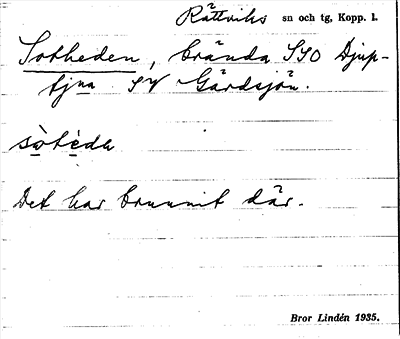 Rättviks sn och tg, Kopp. l.
Sotheden, brända SSO Djup-
tjna SV Gärdsjön.
sòtèdn
Det har brunnit där.
Bror Lindén 1935.